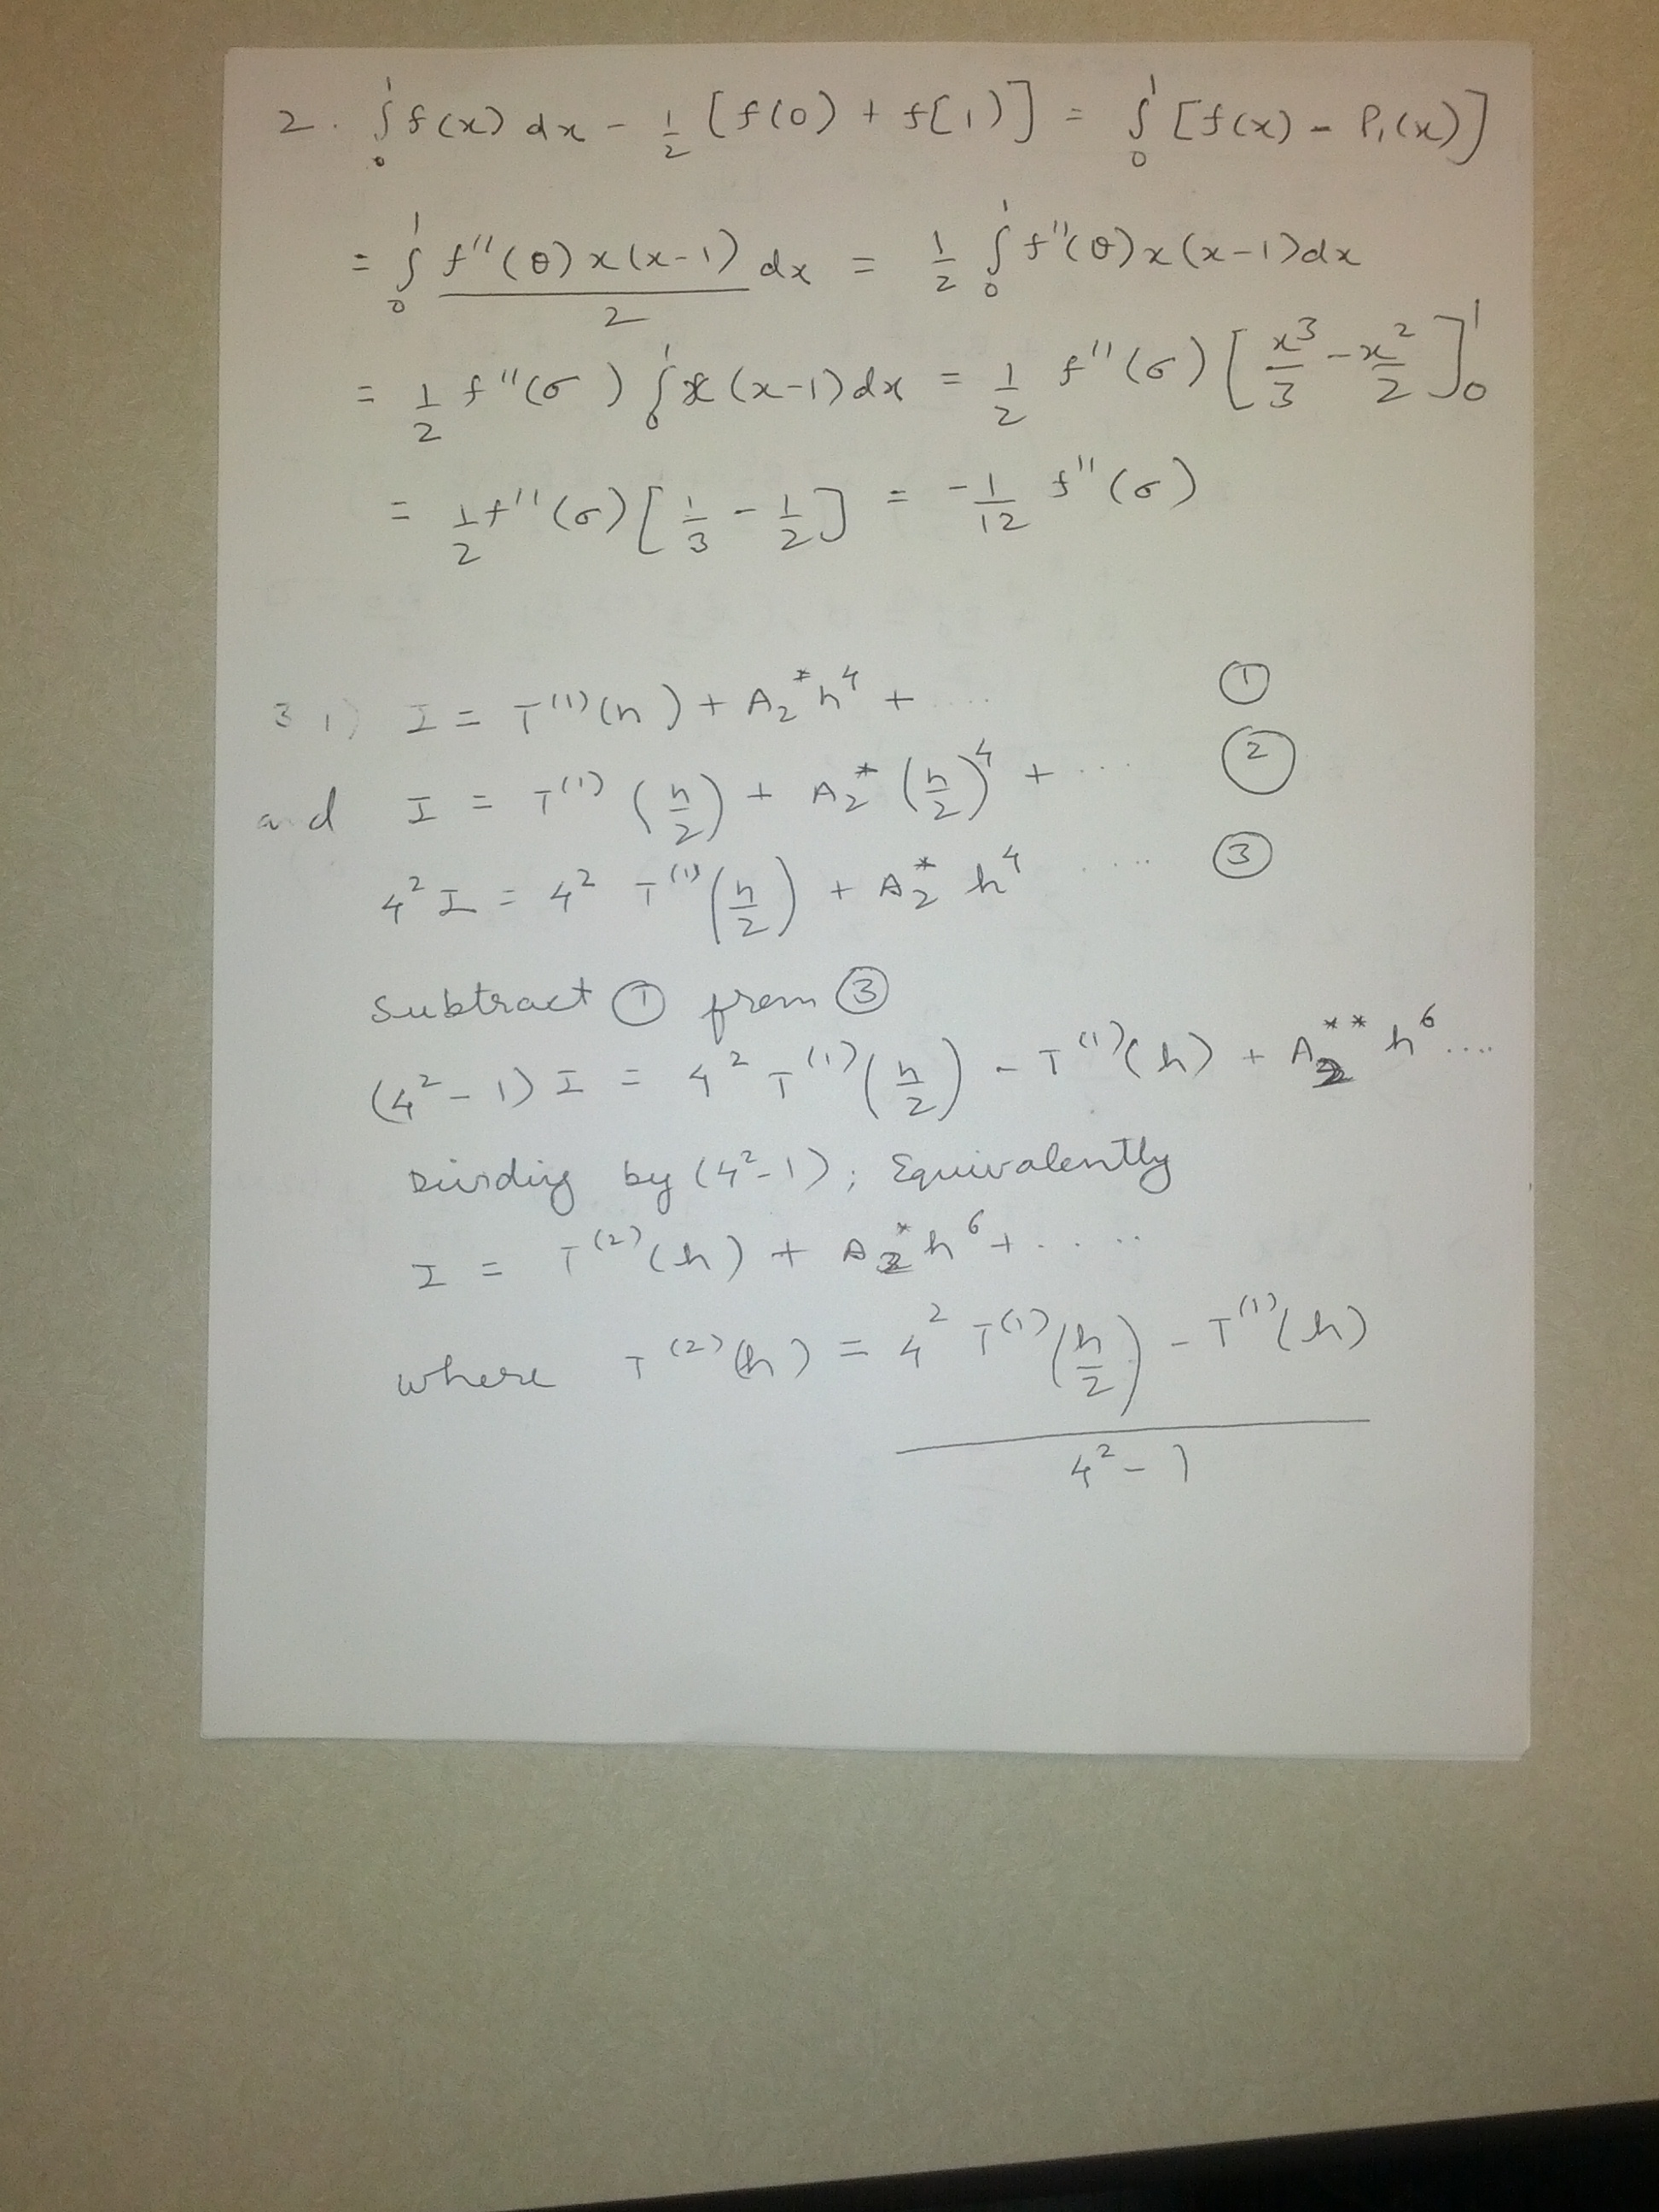 2. ∫₀¹ f(x) dx - 1/2 [f(0) + f[1)] = ∫₀¹ [f(x) - P₁(x)]
= ∫₀¹ f''(θ) x(x-1)/2 dx = 1/2 ∫₀¹ f''(θ) x(x-1)dx
= 1/2 f''(σ) ∫₀¹ x(x-1)dx = 1/2 f''(σ) [x³/3 - x²/2]₀¹
= 1/2 f''(σ) [1/3 - 1/2] = -1/12 f''(σ)
3 1) I = T⁽¹⁾(h) + A₂* h⁴ + .... ①
and I = T⁽¹⁾(h/2) + A₂* (h/2)⁴ + ... ②
4² I = 4² T⁽¹⁾(h/2) + A₂* h⁴ .... ③
Subtract ① from ③
(4² - 1) I = 4² T⁽¹⁾(h/2) - T⁽¹⁾(h) + A₃** h⁶ ....
Dividing by (4² - 1); Equivalently
I = T⁽²⁾(h) + A₃* h⁶ + .....
where T⁽²⁾(h) = 4² T⁽¹⁾(h/2) - T⁽¹⁾(h)
4² - 1